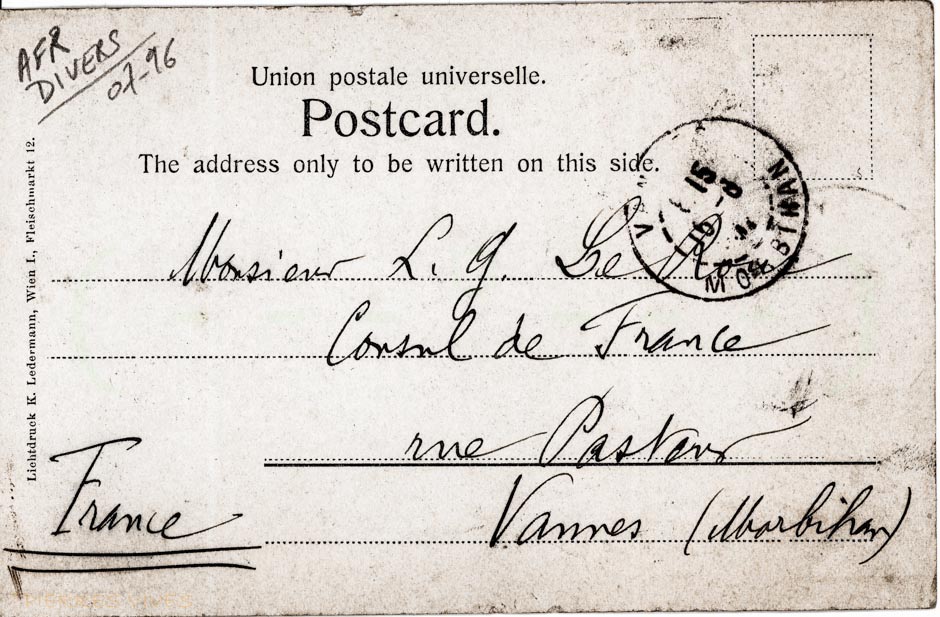 AFR
DIVERS
07-96
Union postale universelle.
Postcard.
The address only to be written on this side.
Lichtdruck K. Ledermann, Wien I., Fleischmarkt 12.
15
MORBIHAN
Monsieur L. G. Le
Consul de France
rue Pasteur
Vannes (Morbihan)
France